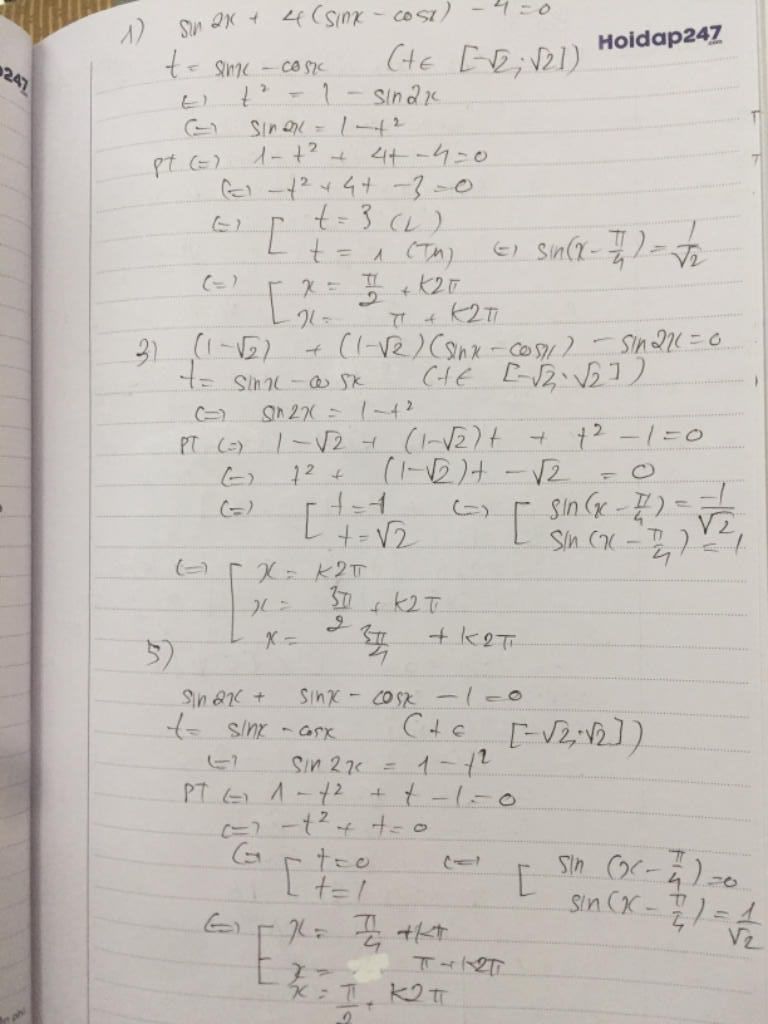 1) sin2x + 4(sinx - cosx) - 4 = 0
Hoidap247
.com
247
t = sinx - cosx (t ∈ [-√2; √2])
(=) t² = 1 - sin2x
(=) sin2x = 1 - t²
PT (=) 1 - t² + 4t - 4 = 0
(=) -t² + 4t - 3 = 0
(=) [ t = 3 (L)
t = 1 (Tm) (=) sin(x - π/4) = 1/√2
(=) [ x = π/2 + k2π
x = π + k2π
3) (1-√2) + (1-√2)(sinx - cosx) - sin2x = 0
t = sinx - cosx (t ∈ [-√2; √2])
(=) sin2x = 1 - t²
PT (=) 1 - √2 + (1-√2)t + t² - 1 = 0
(=) t² + (1-√2)t - √2 = 0
(=) [ t = -1 (=) [ sin(x - π/4) = -1/√2
t = √2 sin(x - π/4) = 1
(=) [ x = k2π
x = 3π/2 + k2π
x = 3π/4 + k2π
5)
sin2x + sinx - cosx - 1 = 0
t = sinx - cosx (t ∈ [-√2; √2])
(=) sin2x = 1 - t²
PT (=) 1 - t² + t - 1 = 0
(=) -t² + t = 0
(=) [ t = 0 (=) [ sin(x - π/4) = 0
t = 1 sin(x - π/4) = 1/√2
(=) [ x = π/4 + kπ
x = π + k2π
x = π/2 + k2π